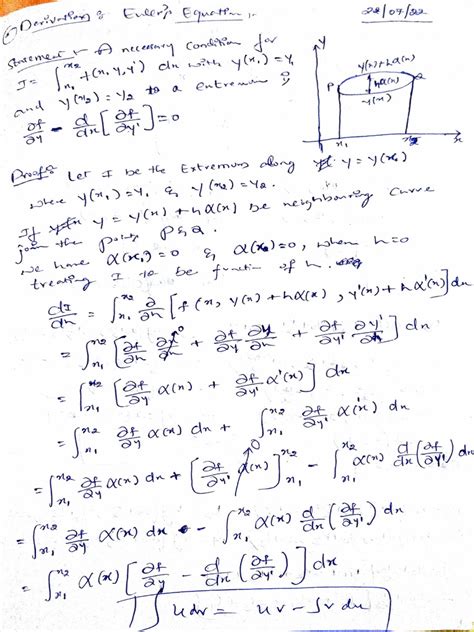 ① Derivation of Euler's Equation :- 28/07/22
Statement :- A necessary condition for
I = ∫_{x₁}^{x₂} f(x, y, y') dx with y(x₁) = y₁
and y(x₂) = y₂ to a extremum is
∂f/∂y - d/dx [∂f/∂y'] = 0
y
y(x)+hα(x)
P
hα(x)
Q
y(x)
x₁
x₂
x
Proof :- Let I be the Extremum along y = y(x)
where y(x₁) = y₁ & y(x₂) = y₂.
If y = y(x) + hα(x) be neighbouring curve
join the points P & Q.
We have α(x₁) = 0 & α(x₂) = 0, when h=0
treating I to be function of h.
dI/dh = ∫_{x₁}^{x₂} ∂/∂h [f(x, y(x) + hα(x), y'(x) + hα'(x)] dx
= ∫_{x₁}^{x₂} [∂f/∂x ∂x/∂h 0 + ∂f/∂y ∂y/∂h + ∂f/∂y' ∂y'/∂h] dx
= ∫_{x₁}^{x₂} [∂f/∂y α(x) + ∂f/∂y' α'(x)] dx
= ∫_{x₁}^{x₂} ∂f/∂y α(x) dx + ∫_{x₁}^{x₂} ∂f/∂y' α'(x) dx
= ∫_{x₁}^{x₂} ∂f/∂y α(x) dx + [∂f/∂y' α(x)]_{x₁}^{x₂} 0 - ∫_{x₁}^{x₂} α(x) d/dx (∂f/∂y') dx
= ∫_{x₁}^{x₂} ∂f/∂y α(x) dx - ∫_{x₁}^{x₂} α(x) d/dx (∂f/∂y') dx
= ∫_{x₁}^{x₂} α(x) [∂f/∂y - d/dx (∂f/∂y')] dx
∫u dv = uv - ∫v du